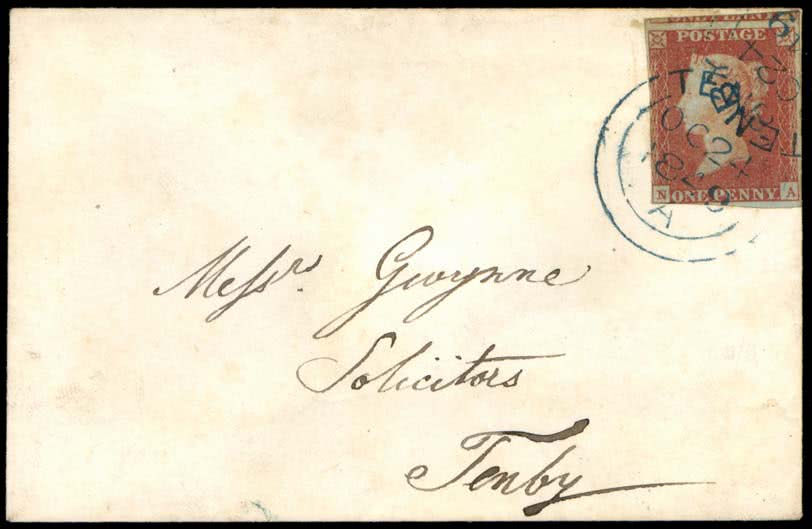 POSTAGE
N ONE PENNY A
TENBY
OC
Messrs. Gwynne
Solicitors
Tenby